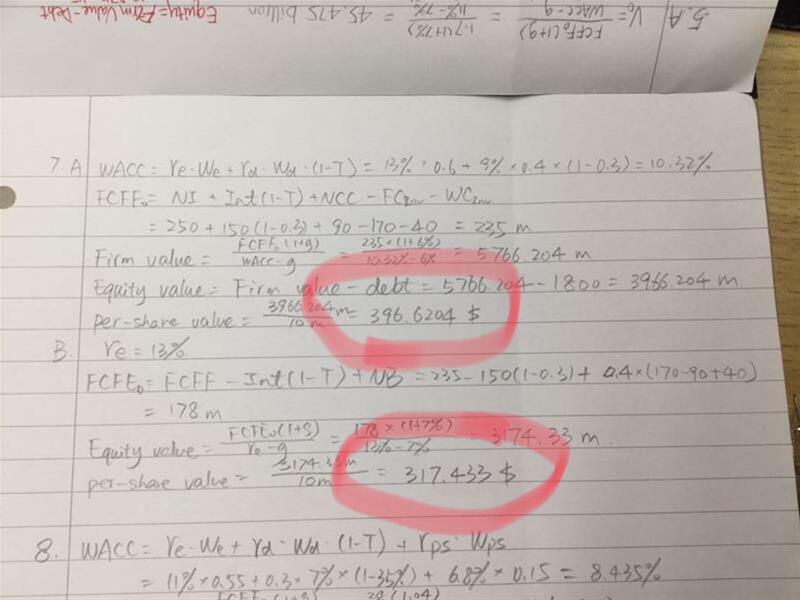 5.A V₀ = FCFF₀(1+g) / WACC-g = 1.7(1+7%) / 11%-7% = 45.475 billion Equity = Firm Value - Debt
7. A. WACC = re·We + rd·Wd·(1-T) = 13% × 0.6 + 9% × 0.4 × (1-0.3) = 10.32%
FCFF₀ = NI + Int(1-T) + NCC - FCInv - WCInv
= 250 + 150(1-0.3) + 90 - 170 - 40 = 235 m
Firm value = FCFF₀(1+g) / WACC-g = 235×(1+6%) / 10.32%-6% = 5766.204 m
Equity value = Firm value - debt = 5766.204 - 1800 = 3966.204 m
per-share value = 3966.204 m / 10 m = 396.6204 $
B. re = 13%.
FCFE₀ = FCFF - Int(1-T) + NB = 235 - 150(1-0.3) + 0.4×(170-90+40)
= 178 m
Equity value = FCFE₀(1+g) / re-g = 178×(1+7%) / 13%-7% = 3174.33 m.
per-share value = 3174.33m / 10m = 317.433 $
8. WACC = re·We + rd·Wd·(1-T) + rps·Wps
= 11% × 0.55 + 0.3 × 7% × (1-35%) + 6.8% × 0.15 = 8.435%